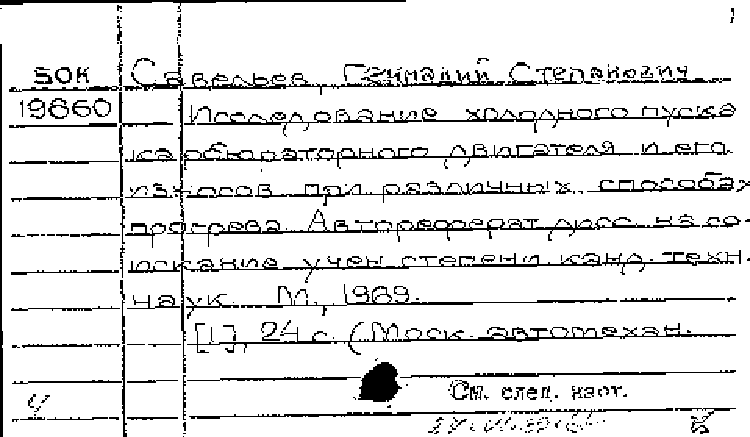 БОК Савельев, Геннадий Степанович
19660 Исследование холодного пуска
карбюраторного двигателя и его
износов при различных способах
прогрева. Автореферат дисс. на со-
искание учен. степени канд. техн.
наук. М., 1969.
[1], 24 с. (Моск. автомехан.
См. след. карт.